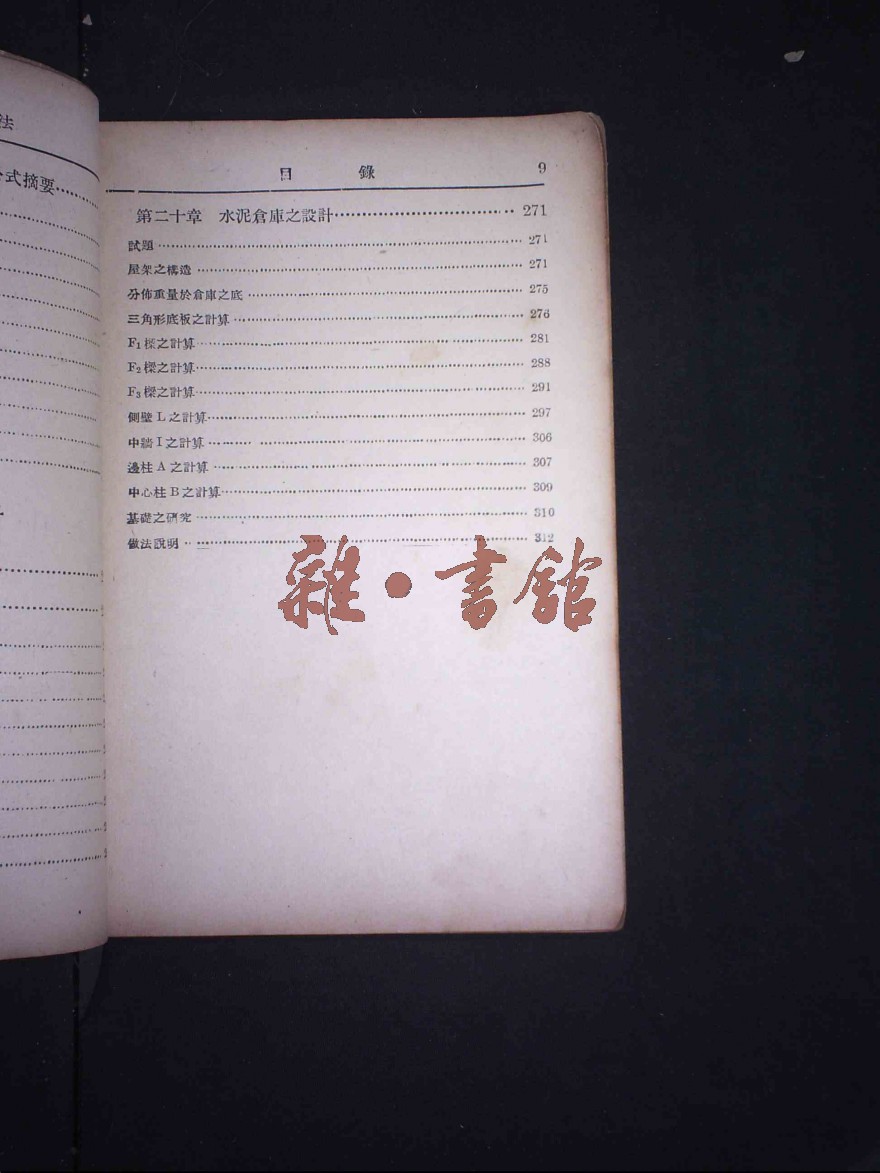 法
公式摘要
目錄 9
第二十章 水泥倉庫之設計 271
試題 271
屋架之構造 271
分佈重量於倉庫之底 275
三角形底板之計算 276
F₁樑之計算 281
F₂樑之計算 288
F₃樑之計算 291
側壁L之計算 297
中牆I之計算 306
邊柱A之計算 307
中心柱B之計算 309
基礎之研究 310
做法說明 312
雜•書館